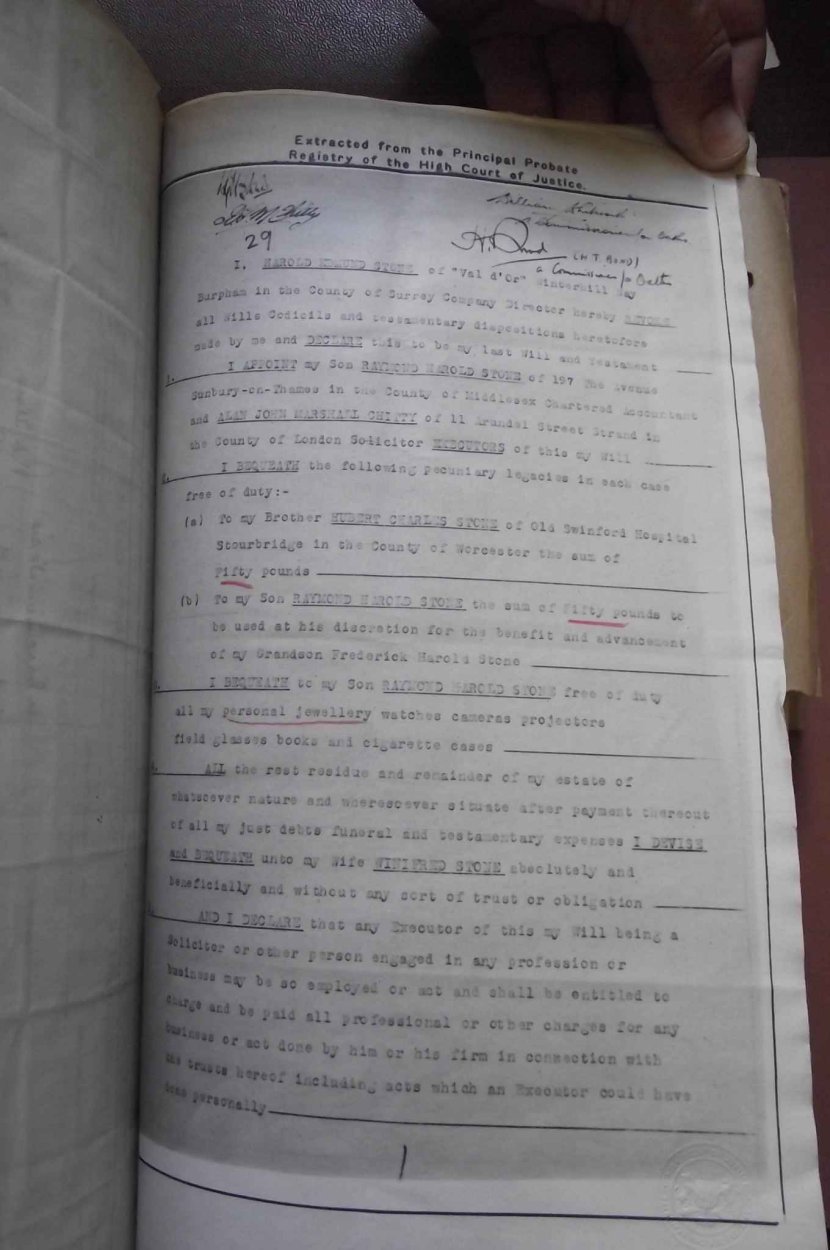 Extracted from the Principal Probate
Registry of the High Court of Justice.
29
(H T BOND)
a Commissioner for Oaths
I, HAROLD EDMUND STONE of "Val d'Or" Winterhill Way
Burpham in the County of Surrey Company Director hereby REVOKE
all Wills Codicils and testamentary dispositions heretofore
made by me and DECLARE this to be my last Will and Testament
1. I APPOINT my Son RAYMOND HAROLD STONE of 197 The Avenue
Sunbury-on-Thames in the County of Middlesex Chartered Accountant
and ALAN JOHN MARSHALL CHITTY of 11 Arundel Street Strand in
the County of London Solicitor EXECUTORS of this my Will
2. I BEQUEATH the following pecuniary legacies in each case
free of duty:-
(a) To my Brother HUBERT CHARLES STONE of Old Swinford Hospital
Stourbridge in the County of Worcester the sum of
Fifty pounds
(b) To my Son RAYMOND HAROLD STONE the sum of Fifty pounds to
be used at his discretion for the benefit and advancement
of my Grandson Frederick Harold Stone
3. I BEQUEATH to my Son RAYMOND HAROLD STONE free of duty
all my personal jewellery watches cameras projectors
field glasses books and cigarette cases
4. ALL the rest residue and remainder of my estate of
whatsoever nature and wheresoever situate after payment thereout
of all my just debts funeral and testamentary expenses I DEVISE
and BEQUEATH unto my Wife WINIFRED STONE absolutely and
beneficially and without any sort of trust or obligation
AND I DECLARE that any Executor of this my Will being a
Solicitor or other person engaged in any profession or
business may be so employed or act and shall be entitled to
charge and be paid all professional or other charges for any
business or act done by him or his firm in connection with
the trusts hereof including acts which an Executor could have
done personally
1